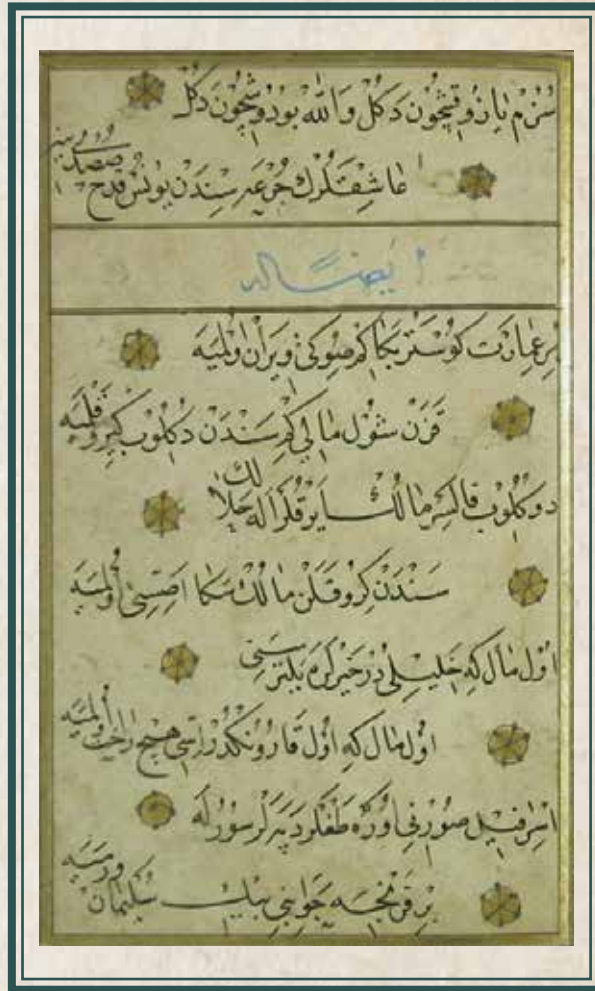 سُزُم يَازُ وقِيشِچُون دَكُل وَاللّٰه بُو دُوشِچُون دَكُل
عَاشِقَلَرِك جُرْعَه سِنْدَن يُونُس قَدَح
ايضًا له
بِر عِمَارَت كُوسْتَر بَكَا كِم صُوكِی وِيرَان اولْمَيَه
قَزَن شُول مَالِی كِم سَنْدَن دوكُلوب كِيرو قَلْمَيَه
دوكُلوب قَالِيسَر مَالِك ايرقلر اله حلالك
سَنْدَن كِرو قَلَن مَالِك سَكَا اصّسی اُولْمَيَه
اُول مَال كِه خَلِيلِی دُر خَيرلره يلتر سَنِی
اُول مَال كِه اُول قَارُونِكْدُر اسّی هِيچ رَاحَت اولْمَيَه
اِسْرَافِيل صُورْنِی اُورَه طَغْلَر دَپَه لَر سُورُلَه
بِر قَرِنْجَه جَوَابِنِی بيك سُلَيْمَان وِرْمَيَه